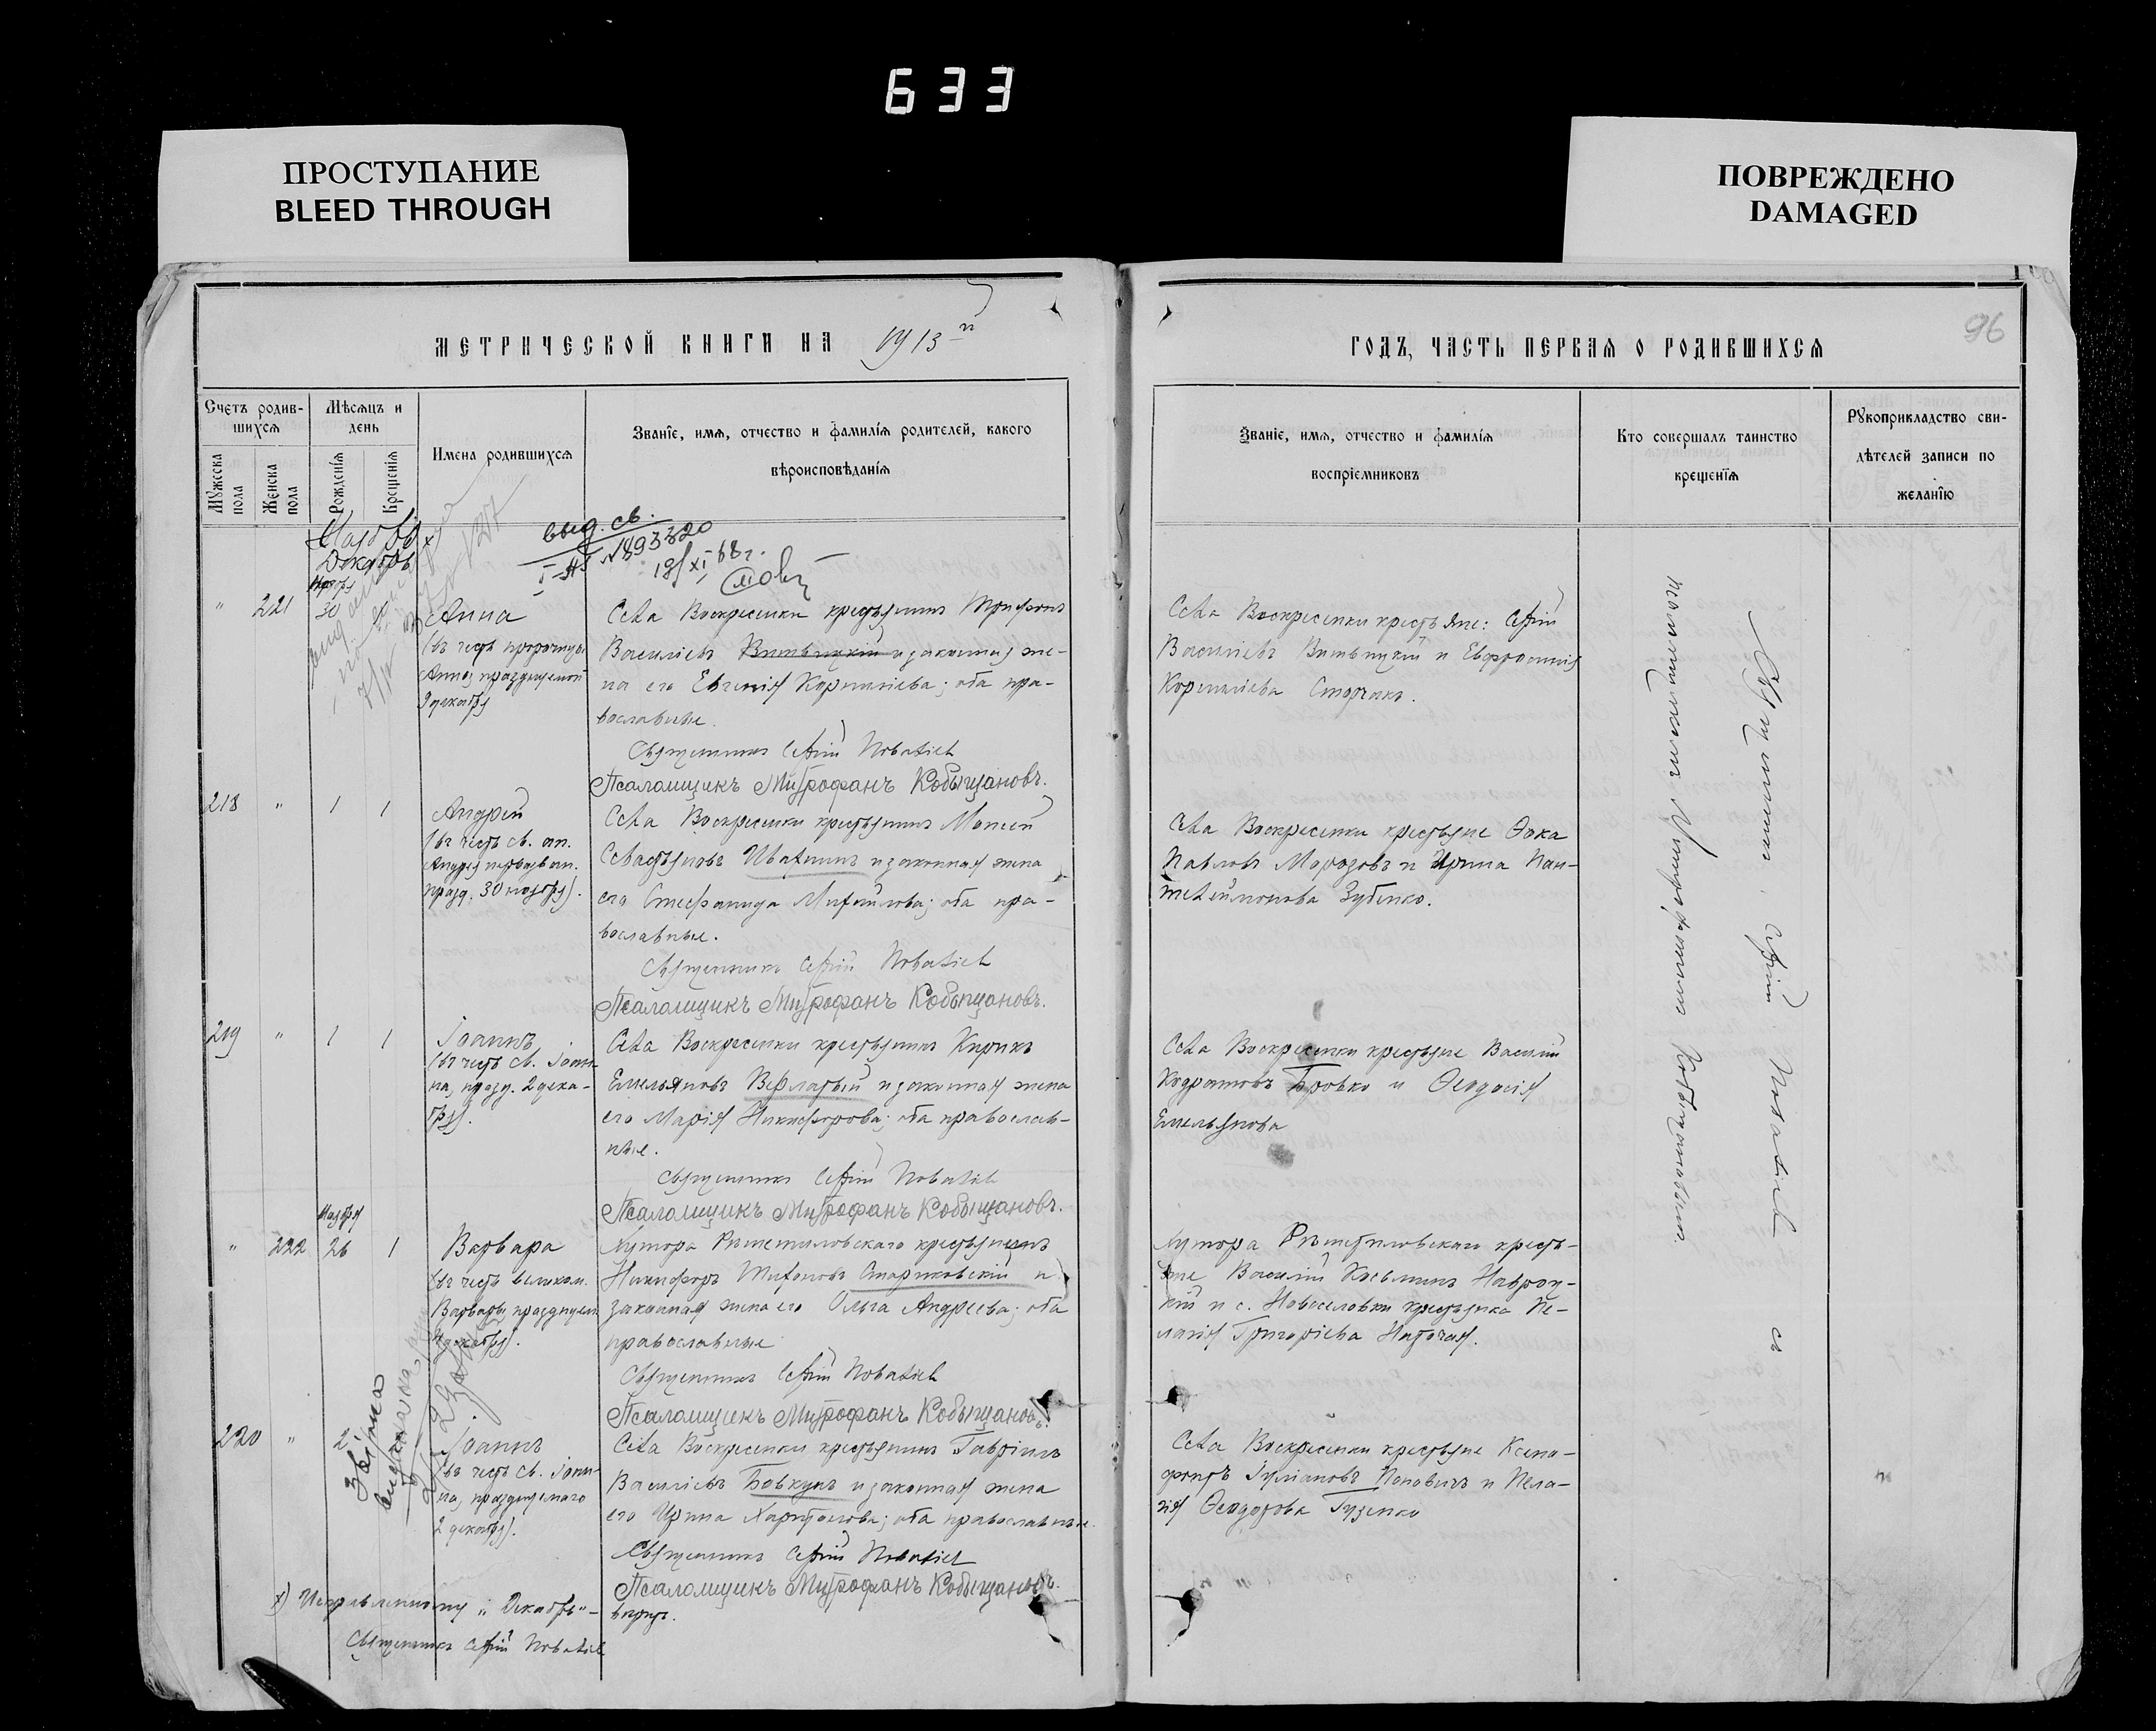 633
ПРОСТУПАНИЕ
BLEED THROUGH
ПОВРЕЖДЕНО
DAMAGED
МЕТРИЧЕСКОЙ КНИГИ НА 1913 й
ГОДЪ, ЧАСТЬ ПЕРВАЯ О РОДИВШИХСЯ
96
Счетъ родив-
шихся
Мѣсяцъ и
день
Мужеска
пола
Женска
пола
Рожденія
Крещенія
Имена родившихся
Званіе, имя, отчество и фамилія родителей, какого
вѣроисповѣданія
Званіе, имя, отчество и фамилія
воспріемниковъ
Кто совершалъ таинство
крещенія
Рукоприкладство сви-
дѣтелей записи по
желанію
Ноябрь x)
Декабрь
выд. св.
I-АГ №893320
19/XI-68 г.
Ноябрь
" 221 30
Анна
(въ честь пророчицы
Анны, празднуемой
9 декабря
Села Воскресенки крестьянинъ Трифонъ
Василіевъ Витвицкій и законная же-
на его Евгенія Корниліева; оба пра-
вославные.
Священникъ Сергій
Псаломщикъ Митрофанъ Кобыщановъ.
Села Воскресенки крестьяне: Сергій
Василіевъ Витвицкій и Евфросинія
Корниліева Сторчакъ.
218 " 1 1
Андрей
(въ честь св. ап.
Андрея первозван.
празд. 30 ноября).
Села Воскресенки крестьянинъ Моисей
Севастьяновъ Ивахнинъ и законная жена
его Стефанида Михайлова; оба пра-
вославные.
Священникъ Сергій
Псаломщикъ Митрофанъ Кобыщановъ.
Села Воскресенки крестьяне Фока
Павловъ Морозовъ и Ирина Пан-
телеймонова Зубенко.
219 " 1 1
Іоаннъ
(въ честь св. Іоан-
на, празд. 2 дека-
бря).
Села Воскресенки крестьянинъ Кирикъ
Емельяновъ Верлатый и законная жена
его Марія Никифорова; оба православ-
ные.
Священникъ Сергій
Псаломщикъ Митрофанъ Кобыщановъ.
Села Воскресенки крестьяне Василій
Кодратовъ Бровко и Феодосія
Емельянова
Ноября
" 222 26 1
Варвара
(въ честь великом.
Варвары, празднуем.
4 декабря).
Хутора крестьянинъ
Никифоръ Тихоновъ Стариковскій и
законная жена его Ольга Андреева; оба
православные
Священникъ Сергій
Псаломщикъ Митрофанъ Кобыщановъ.
Хутора кресть-
яне Василій Косьминъ Навроц-
кій и с. Новоселовки крестьянка Пе-
лагія Григоріева
220 " 2
Іоаннъ
(въ честь св. Іоан-
на, празднуемаго
2 декабря).
Села Воскресенки крестьянинъ Гавріилъ
Василіевъ Бовкунъ и законная жена
его Ирина Харитонова; оба православные.
Священникъ Сергій
Псаломщикъ Митрофанъ Кобыщановъ.
Села Воскресенки крестьяне Ксено-
фонтъ Іуліановъ Поповичъ и Пела-
гія Феодорова Гузенко
x) Исправленному "Декабрь" –
вѣрить.
Священникъ Сергій
Священникъ Сергій съ
псаломщикомъ Митрофаномъ Кобыщановымъ